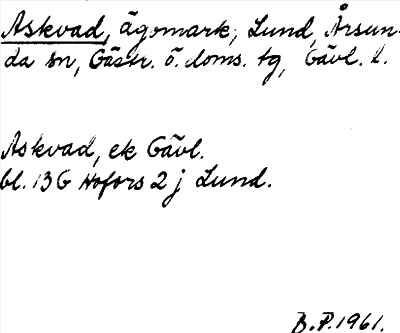 Askvad, ägomark, Lund, Årsun-
da sn, Gästr. ö. doms. tg, Gävl. l.
Askvad, ek Gävl.
bl. 13 G Hofors 2 j Lund.
B.P. 1961.